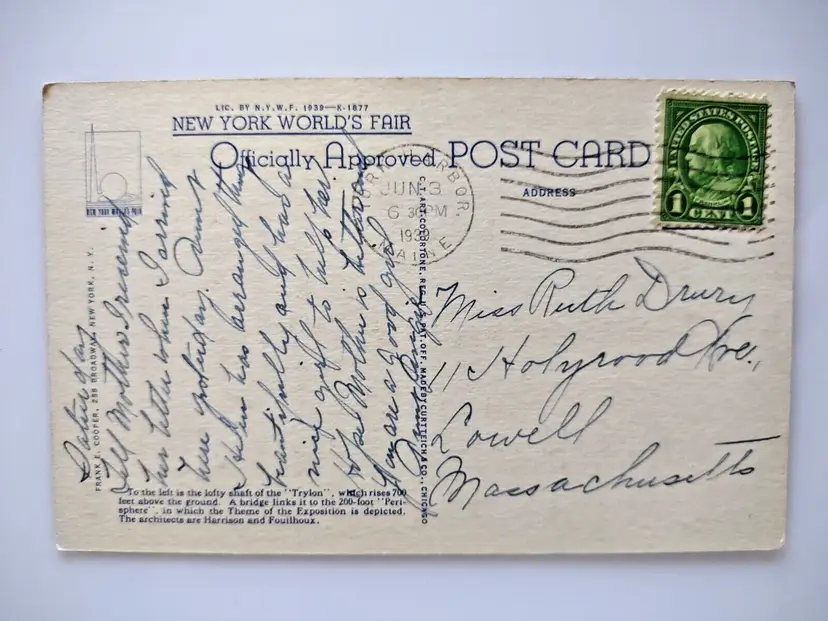 LIC. BY N.Y.W.F. 1939—K-1877
NEW YORK WORLD'S FAIR
Officially Approved POST CARD
ADDRESS
HARBOR,
JUN 3
6 30PM
1939
MAINE
UNITED STATES POSTAGE
1 CENT 1
Saturday
Tell Mother I received
her letter when I arrived
here yesterday. Aunt
Helen has arranged things
beautifully and had a
nice girl to help her.
Hope Mother is better and
you are a good girl.
Miss Ruth Drury
11 Holyrood Ave.,
Lowell
Massachusetts
FRANK E. COOPER, 288 BROADWAY, NEW YORK, N. Y.
C.T. ART-COLORTONE, REG. U.S. PAT. OFF. MADE BY CURT TEICH & CO., CHICAGO
To the left is the lofty shaft of the "Trylon", which rises 700
feet above the ground. A bridge links it to the 200-foot "Peri-
sphere", in which the Theme of the Exposition is depicted.
The architects are Harrison and Fouilhoux.